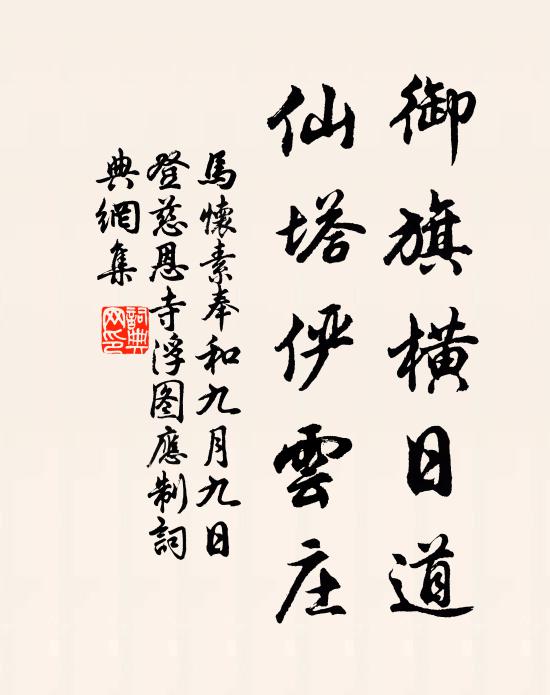 御旗橫日道
仙塔儼雲庄
馬懷素奉和九月九日
登慈恩寺浮图應制詞
典網集
詞典
网印